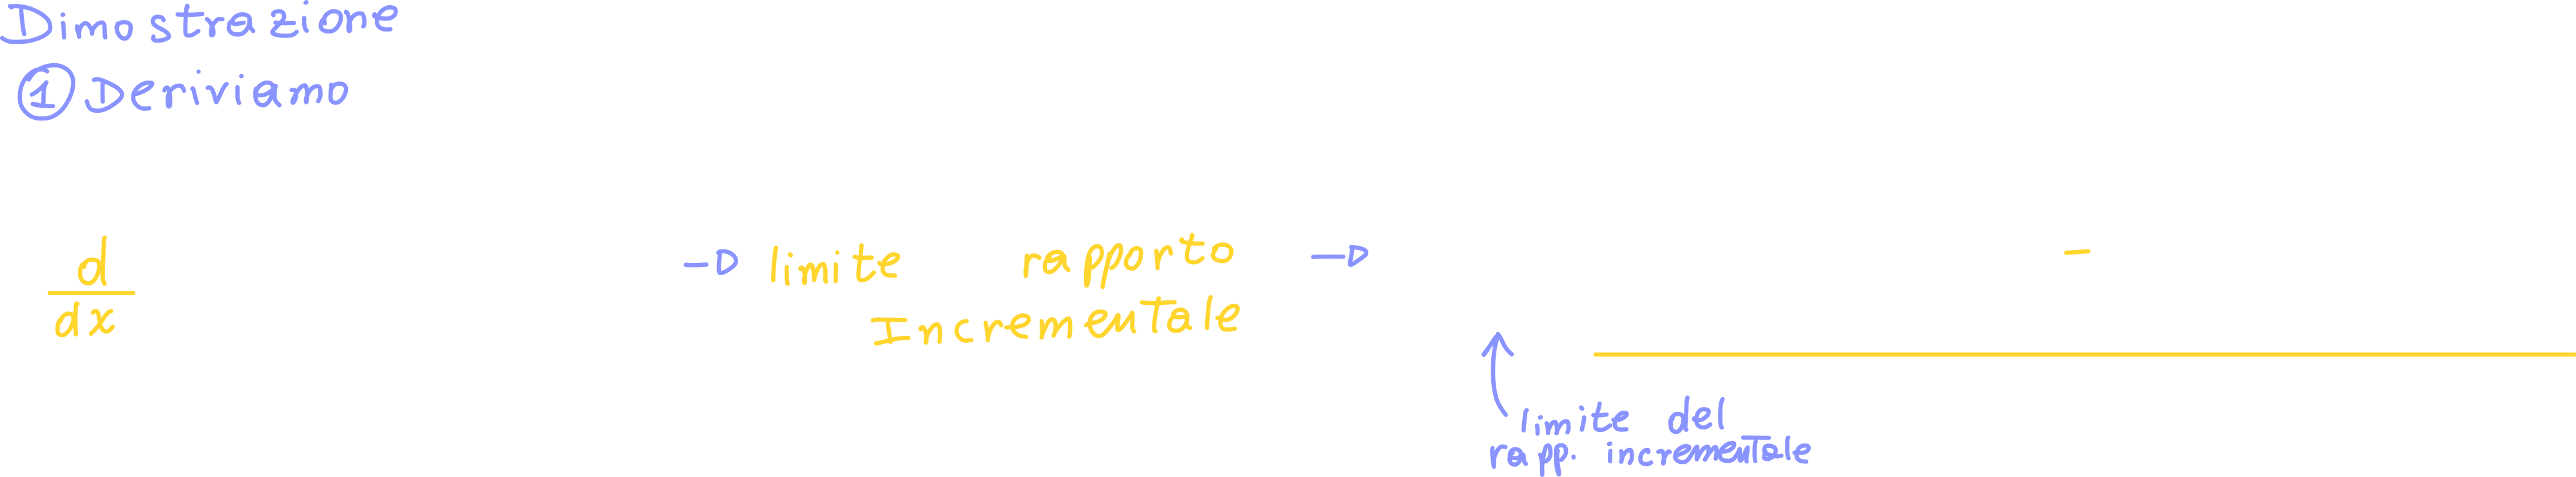 Dimostrazione
① Deriviamo
d
dx
limite rapporto
Incrementale
-
limite del
rapp. incrementale